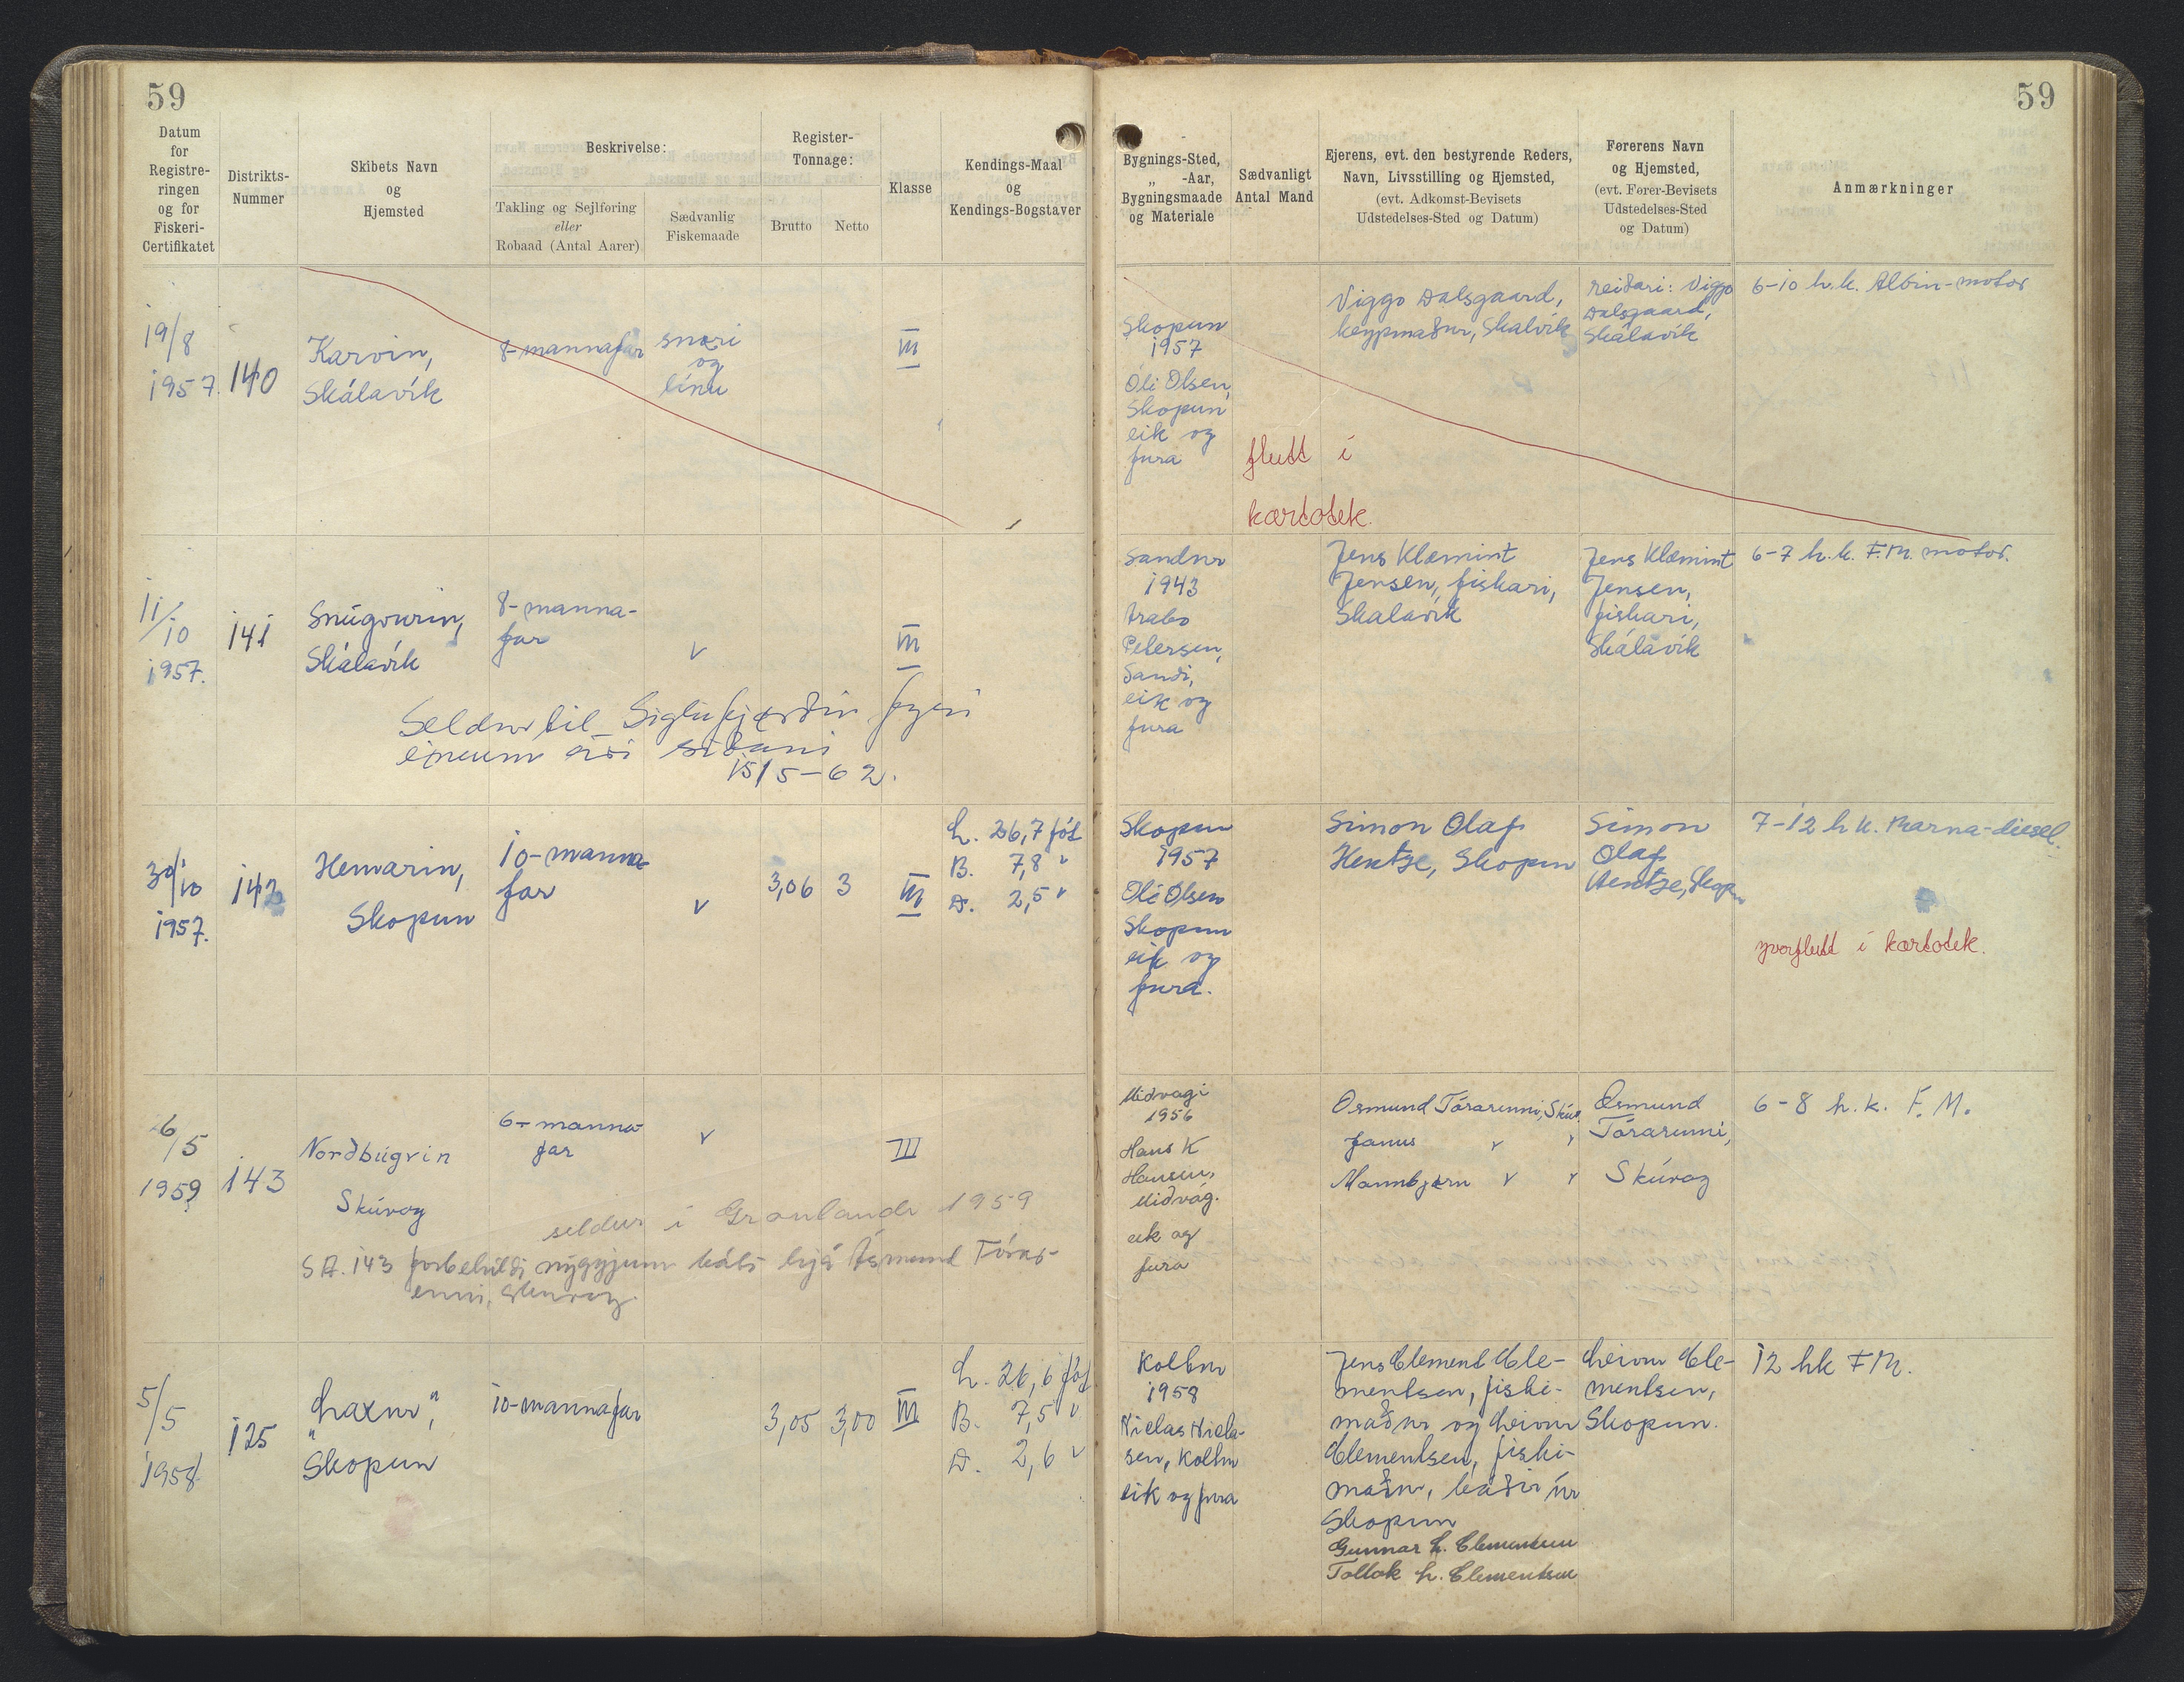 59
59
Datum
for
Registre-
ringen
og for
Fiskeri-
Certifikatet
Distrikts-
Nummer
Skibets Navn
og
Hjemsted
Beskrivelse:
Takling og Sejlføring
eller
Robaad (Antal Aarer)
Sædvanlig
Fiskemaade
Register-
Tonnage:
Brutto
Netto
Klasse
Kendings-Maal
og
Kendings-Bogstaver
Bygnings-Sted,
„ -Aar,
Bygningsmaade
og Materiale
Sædvanligt
Antal Mand
Ejerens, evt. den bestyrende Reders,
Navn, Livsstilling og Hjemsted,
(evt. Adkomst-Bevisets
Udstedelses-Sted og Datum)
Førerens Navn
og Hjemsted,
(evt. Fører-Bevisets
Udstedelses-Sted
og Datum)
Anmærkninger
19/8
1957.
140
Karvin,
Skálavík
8-mannafar
snøri
og
línu
III
Skopun
1957
Óli Olsen,
Skopun
eik og
fura
Viggo Dalsgaard,
keypmaður, Skalvík
reiðari: Viggo
Dalsgaard,
Skálavík
6-10 h.k. Albin-motor
flutt í
kartotek.
11/10
1957.
141
Snúgvurin,
Skálavík
8-manna-
far
v
III
Seldur til Siglufjørðin fyri
einum ári síðani
15/5-62.
Sandur
1943
Trabo
Petersen,
Sandi,
eik og
fura
Jens Klæmint
Jensen, fiskari,
Skalavík
Jens Klæmint
Jensen,
fiskari,
Skálavík
6-7 h.k. F.M. motor.
30/10
1957.
142
Hemarin,
Skopun
10-manna-
far
v
3,06
3
III
L. 26,7 fót
B. 7,8 v
D. 2,5 v
Skopun
1957
Óli Olsen
Skopun
eik og
fura.
Simon Olaf
Hentze, Skopun
Simon
Olaf
Hentze, Skopun
7-12 h k. Marna-diesel.
yvorflutt í kartotek.
6/5
1959
143
Norðbúgvin
Skúvoy
6-manna-
far
v
III
seldur í Grønlandi 1959
SA. 143 forbehildi nýggjum báti hjá Ásmund Tórar-
enni, Skúvoy.
Miðvagi
1956
Hans K
Hansen,
Miðvág.
eik og
fura
Osmund Tórarenni, Skúv.
Janus v v
Mannbjørn v v
Osmund
Tórarenni,
Skúvoy
6-8 h.k. F.M.
5/5
1958
125
"Laxur",
Skopun
10-mannafar
3,05
3,00
III
L. 26,6 fót
B. 7,5 v
D. 2,6 v
Kolbnr
1958
Niclas Niela-
sen, Kolbnr
eik og fura
Jens Clement Cle-
mentsen, fiski-
maður og Heivur
Clementsen, fiski-
maður, báðir úr
Skopun
Gunnar H. Clementsen
Tollok H. Clementsen
Cle-
mentsen,
Skopun.
12 hk FM.